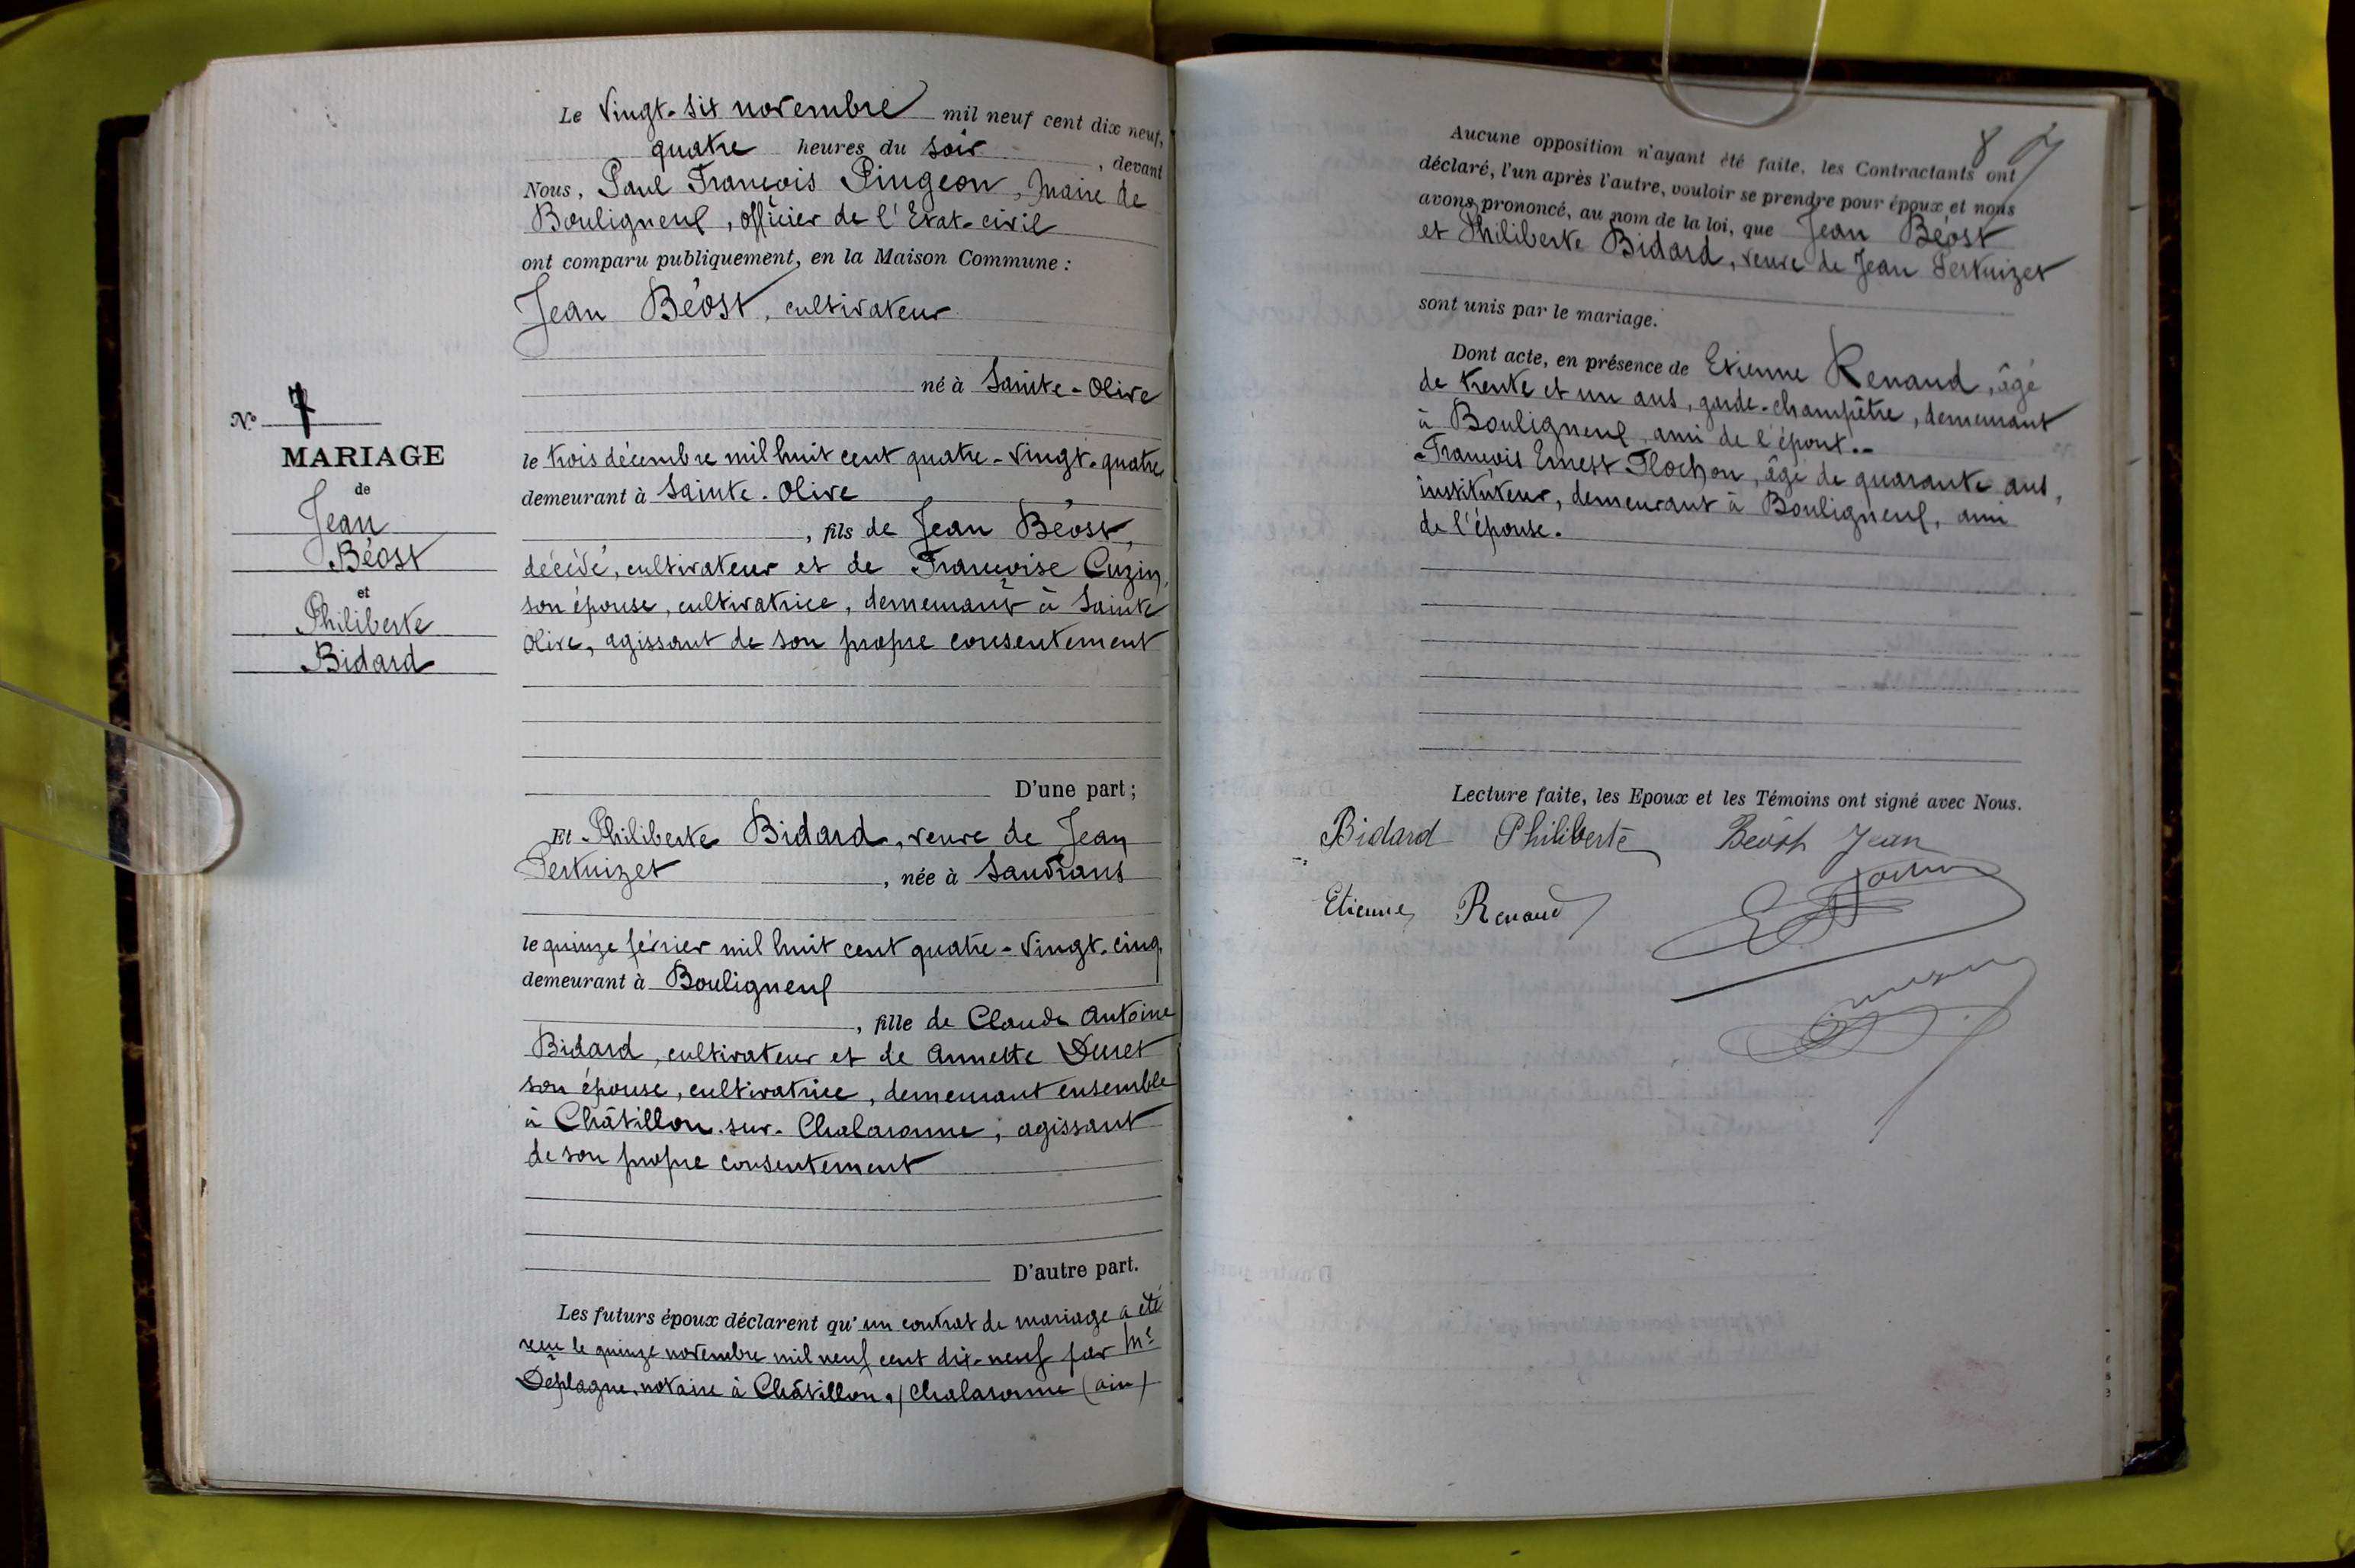 Le Vingt-six novembre mil neuf cent dix neuf,
quatre heures du soir, devant
Nous, Paul François Pingeon, Maire de
Bouligneux, officier de l'Etat-civil
ont comparu publiquement, en la Maison Commune :
Jean Béost, cultivateur
né à Sainte-Olive
le trois décembre mil huit cent quatre-vingt-quatre
demeurant à Sainte-Olive
, fils de Jean Béost,
décédé, cultivateur et de Françoise Cuzin,
son épouse, cultivatrice, demeurant à Sainte
Olive, agissant de son propre consentement
D'une part ;
Et Philiberte Bidard, veuve de Jean
Pertuizet, née à Sandrans
le quinze février mil huit cent quatre-vingt-cinq
demeurant à Bouligneux
, fille de Claude Antoine
Bidard, cultivateur et de Annette Duret
son épouse, cultivatrice, demeurant ensemble
à Châtillon-sur-Chalaronne, agissant
de son propre consentement
D'autre part.
Les futurs époux déclarent qu'un contrat de mariage a été
reçu le quinze novembre mil neuf cent dix-neuf par Me
Deplagne, notaire à Châtillon s/ Chalaronne (ain)
No 7
MARIAGE
de
Jean
Béost
et
Philiberte
Bidard
8
Aucune opposition n'ayant été faite, les Contractants ont
déclaré, l'un après l'autre, vouloir se prendre pour époux et nous
avons prononcé, au nom de la loi, que Jean Béost
et Philiberte Bidard, veuve de Jean Pertuizet
sont unis par le mariage.
Dont acte, en présence de Etienne Renaud, âgé
de trente et un ans, garde-champêtre, demeurant
à Bouligneux, ami de l'époux.-
François Ernest Flochon, âgé de quarante ans,
instituteur, demeurant à Bouligneux, ami
de l'épouse.
Lecture faite, les Epoux et les Témoins ont signé avec Nous.
Bidard Philiberte Béost Jean
Etienne Renaud